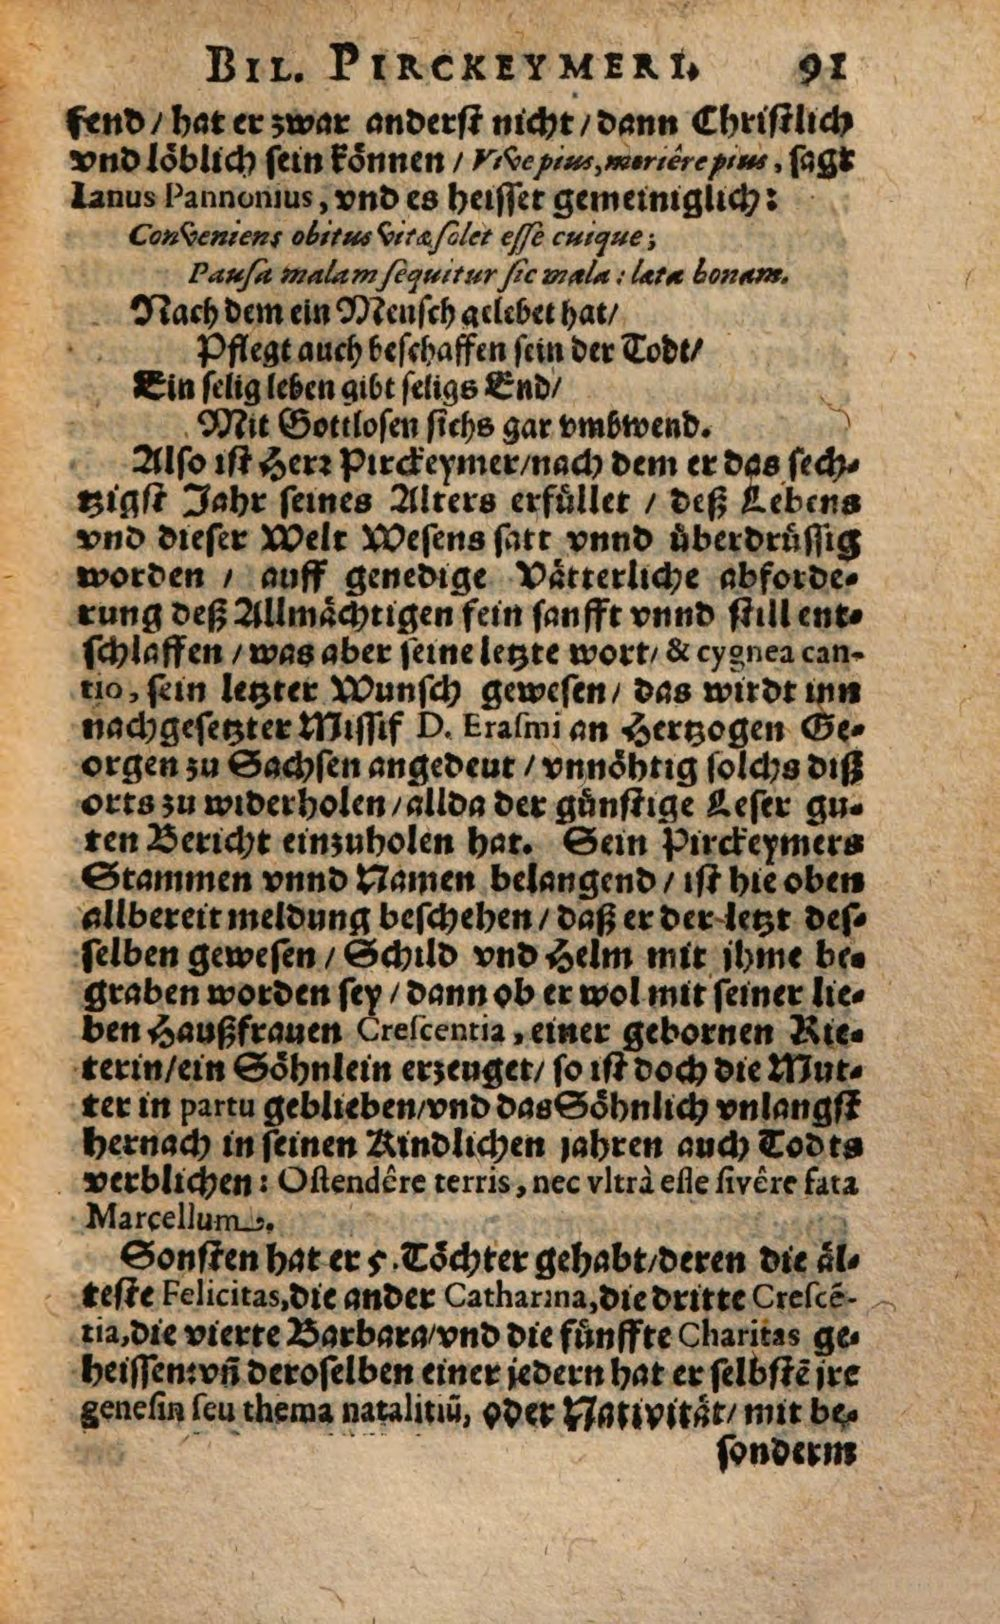 BIL. PIRCKEYMERI. 91
fend / hat er zwar anderst nicht / dann Christlich
vnd löblich sein können / Vive pius, moriêre pius, sagt
Ianus Pannonius, vnd es heisset gemeiniglich:
Conveniens obitus vitæ solet esse cuique;
Pausa malam sequitur sic mala: læta bonam.
Nach dem ein Mensch gelebet hat/
Pflegt auch beschaffen sein der Todt/
Ein selig leben gibt seligs End/
Mit Gottlosen sichs gar vmbwend.
Also ist Herr Pirckeymer/nach dem er das sech-
tzigst Jahr seines Alters erfüllet / deß Lebens
vnd dieser Welt Wesens satt vnnd überdrüssig
worden / auff genedige Vätterliche abforde-
rung deß Allmächtigen fein sanfft vnnd still ent-
schlaffen / was aber seine letzte wort/ & cygnea can-
tio, sein letzter Wunsch gewesen/ das wirdt inn
nachgesetzter Missif D. Erasmi an Hertzogen Ge-
orgen zu Sachsen angedeut / vnnöhtig solchs diß
orts zu widerholen / allda der günstige Leser gu-
ten Bericht einzuholen hat. Sein Pirckeymers
Stammen vnnd Namen belangend / ist hie oben
allbereit meldung beschehen / daß er der letzt des-
selben gewesen / Schild vnd Helm mit ihme be-
graben worden sey / dann ob er wol mit seiner lie-
ben Haußfrauen Crescentia, einer gebornen Rie-
terin/ein Söhnlein erzeuget/ so ist doch die Mut-
ter in partu geblieben/vnd das Söhnlich vnlangst
hernach in seinen Kindlichen jahren auch Todts
verblichen: Ostendêre terris, nec vltrà esse sivêre fata
Marcellum.
Sonsten hat er 5. Töchter gehabt/deren die äl-
teste Felicitas, die ander Catharina, die dritte Crescē-
tia, die vierte Barbara/vnd die fünffte Charitas ge-
heissen: vn̄ deroselben einer jedern hat er selbstē ire
genesin seu thema natalitiū, oder Nativität/ mit be-
sonderm